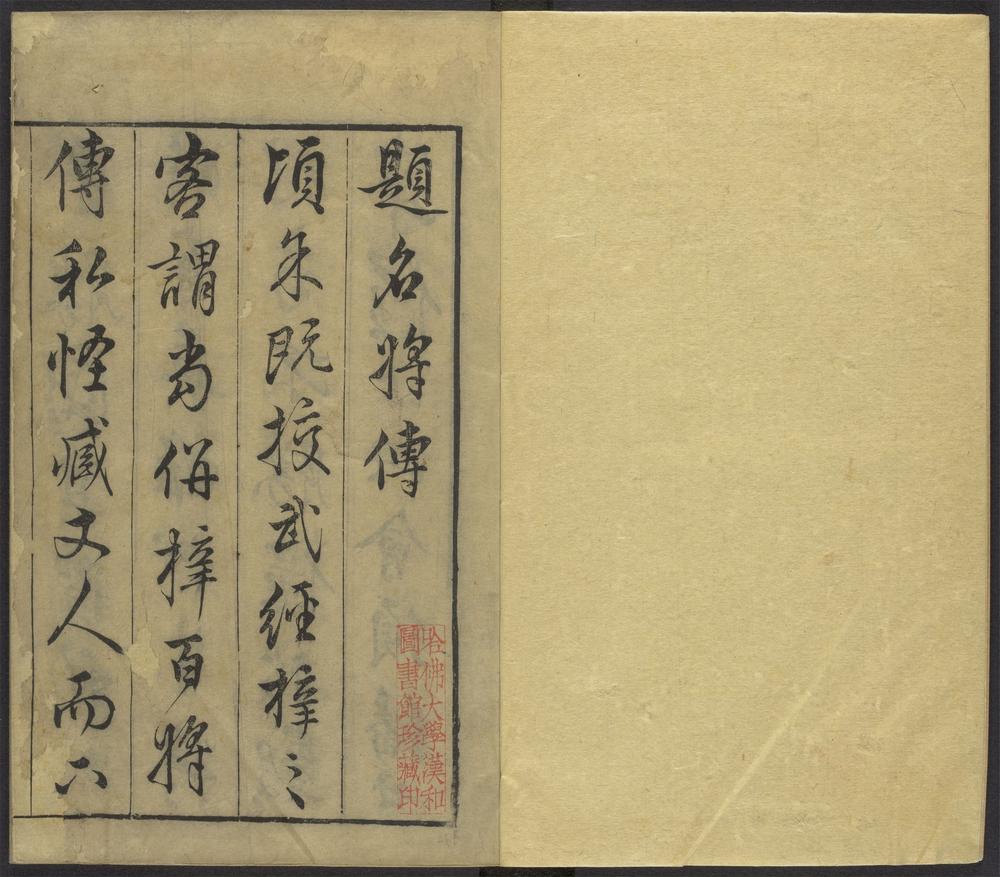 題名將傳
頃余既挍武經梓之
客謂當併梓百將
傳私怪臧文人而六
哈佛大學漢和
圖書館珍藏印